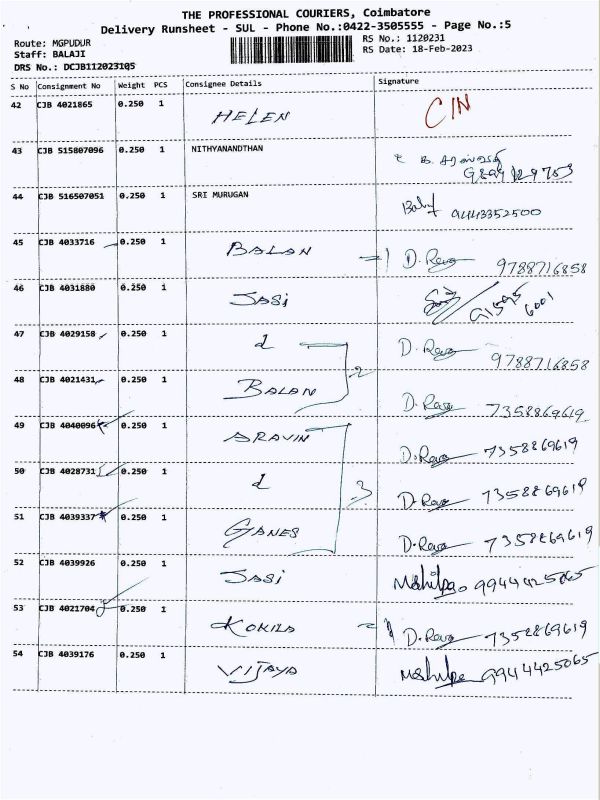 THE PROFESSIONAL COURIERS, Coimbatore
Delivery Runsheet - SUL - Phone No.:0422-3505555 - Page No.:5
Route: MGPUDUR
Staff: BALAJI
DRS No.: DCJB112023105
RS No.: 1120231
RS Date: 18-Feb-2023
S No Consignment No Weight PCS Consignee Details Signature
42 CJB 4021865 0.250 1 HELEN C/N
43 CJB 515807096 0.250 1 NITHYANANDTHAN
44 CJB 516507051 0.250 1 SRI MURUGAN 9443352500
45 CJB 4033716 0.250 1 BALAN D. Rava 9788716858
46 CJB 4031880 0.250 1 SASi
47 CJB 4029158 0.250 1 D. Rava 9788716858
48 CJB 4021431 0.250 1 BALAN 2 D. Rava 7358869619
49 CJB 4040096 0.250 1 ARAVIN D. Rava 7358869619
50 CJB 4028731 0.250 1 3 D. Rava 7358869619
51 CJB 4039337 0.250 1 GANES D. Rava 7358869619
52 CJB 4039926 0.250 1 SASi 9944425065
53 CJB 4021704 0.250 1 KOKILA D. Rava 7358869619
54 CJB 4039176 0.250 1 VIJAYA 9944425065